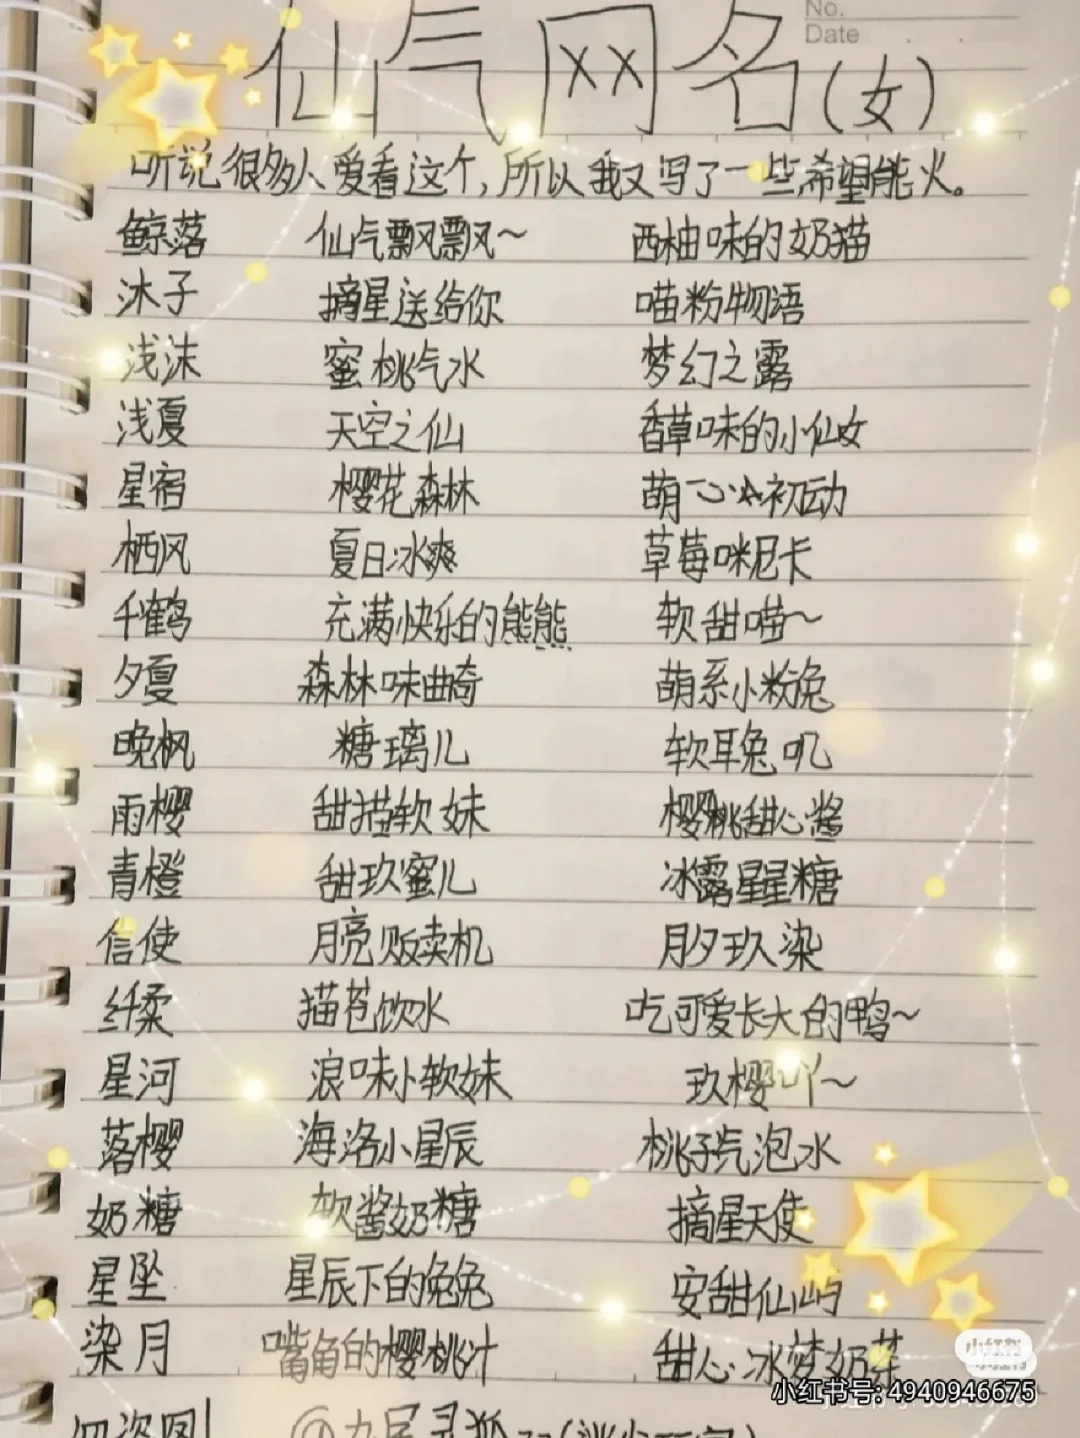 No.
Date
仙气网名(女)
听说很多人爱看这个,所以我又写了一些希望能火。
鲸落 仙气飘飘~ 西柚味的奶猫
沐子 摘星送给你 喵粉物语
浅沫 蜜桃汽水 梦幻之露
浅夏 天空之仙 香草味的小仙女
星宿 樱花森林 萌心☆初动
栖风 夏日冰爽 草莓咪尼卡
千鹤 充满快乐的熊熊 软甜喵~
夕夏 森林味曲奇 萌系小粉兔
晚枫 糖璃儿 软耳兔叽
雨樱 甜掐软妹 樱桃甜心酱
青橙 甜玖蜜儿 冰露星星糖
信使 月亮贩卖机 月夕玖染
纤柔 猫苍饮水 吃可爱长大的鸭~
星河 浪味小软妹 玖樱吖~
落樱 海洛小星辰 桃子汽泡水
奶糖 软酱奶糖 摘星天使
星坠 星辰下的兔兔 安甜仙屿
染月 嘴角的樱桃汁 甜心冰梦奶芽
小红书
小红书号: 4940946675